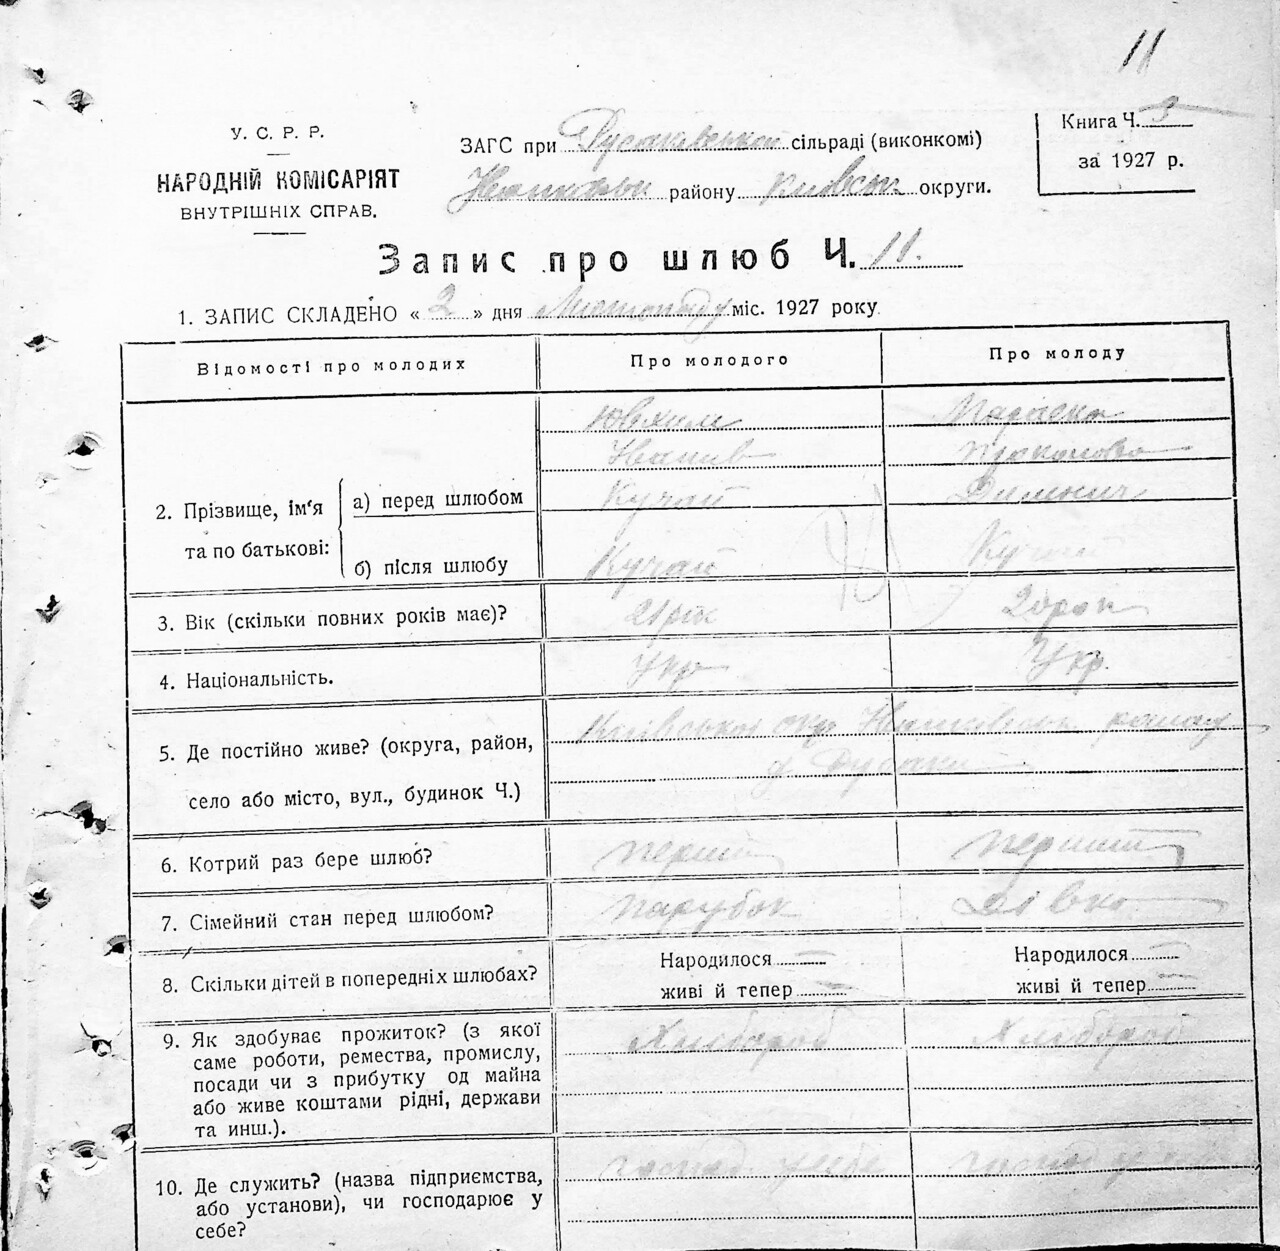 11
У. С. Р. Р.
НАРОДНІЙ КОМІСАРІЯТ
ВНУТРІШНІХ СПРАВ.
ЗАГС при сільраді (виконкомі)
району округи.
Книга Ч. 3
за 1927 р.
Запис про шлюб Ч. 11.
1. ЗАПИС СКЛАДЕНО « 2 » дня Листопаду міс. 1927 року
Відомості про молодих
Про молодого
Про молоду
2. Прізвище, ім'я та по батькові:
а) перед шлюбом
Юхим Параска
Иванів
Кучай
б) після шлюбу
Кучай Кучай
3. Вік (скільки повних років має)?
21 рік 20 рок
4. Національність.
Укр Укр.
5. Де постійно живе? (округа, район,
село або місто, вул., будинок Ч.)
Київської окр
6. Котрий раз бере шлюб?
перший перший
7. Сімейний стан перед шлюбом?
парубок Дівка
8. Скільки дітей в попередніх шлюбах?
Народилося Народилося
живі й тепер живі й тепер
9. Як здобуває прожиток? (з якої
саме роботи, ремества, промислу,
посади чи з прибутку од майна
або живе коштами рідні, держави
та инш.).
Хлібороб Хлібороб
10. Де служить? (назва підприємства,
або установи), чи господарює у
себе?
господ у себе господ у себе